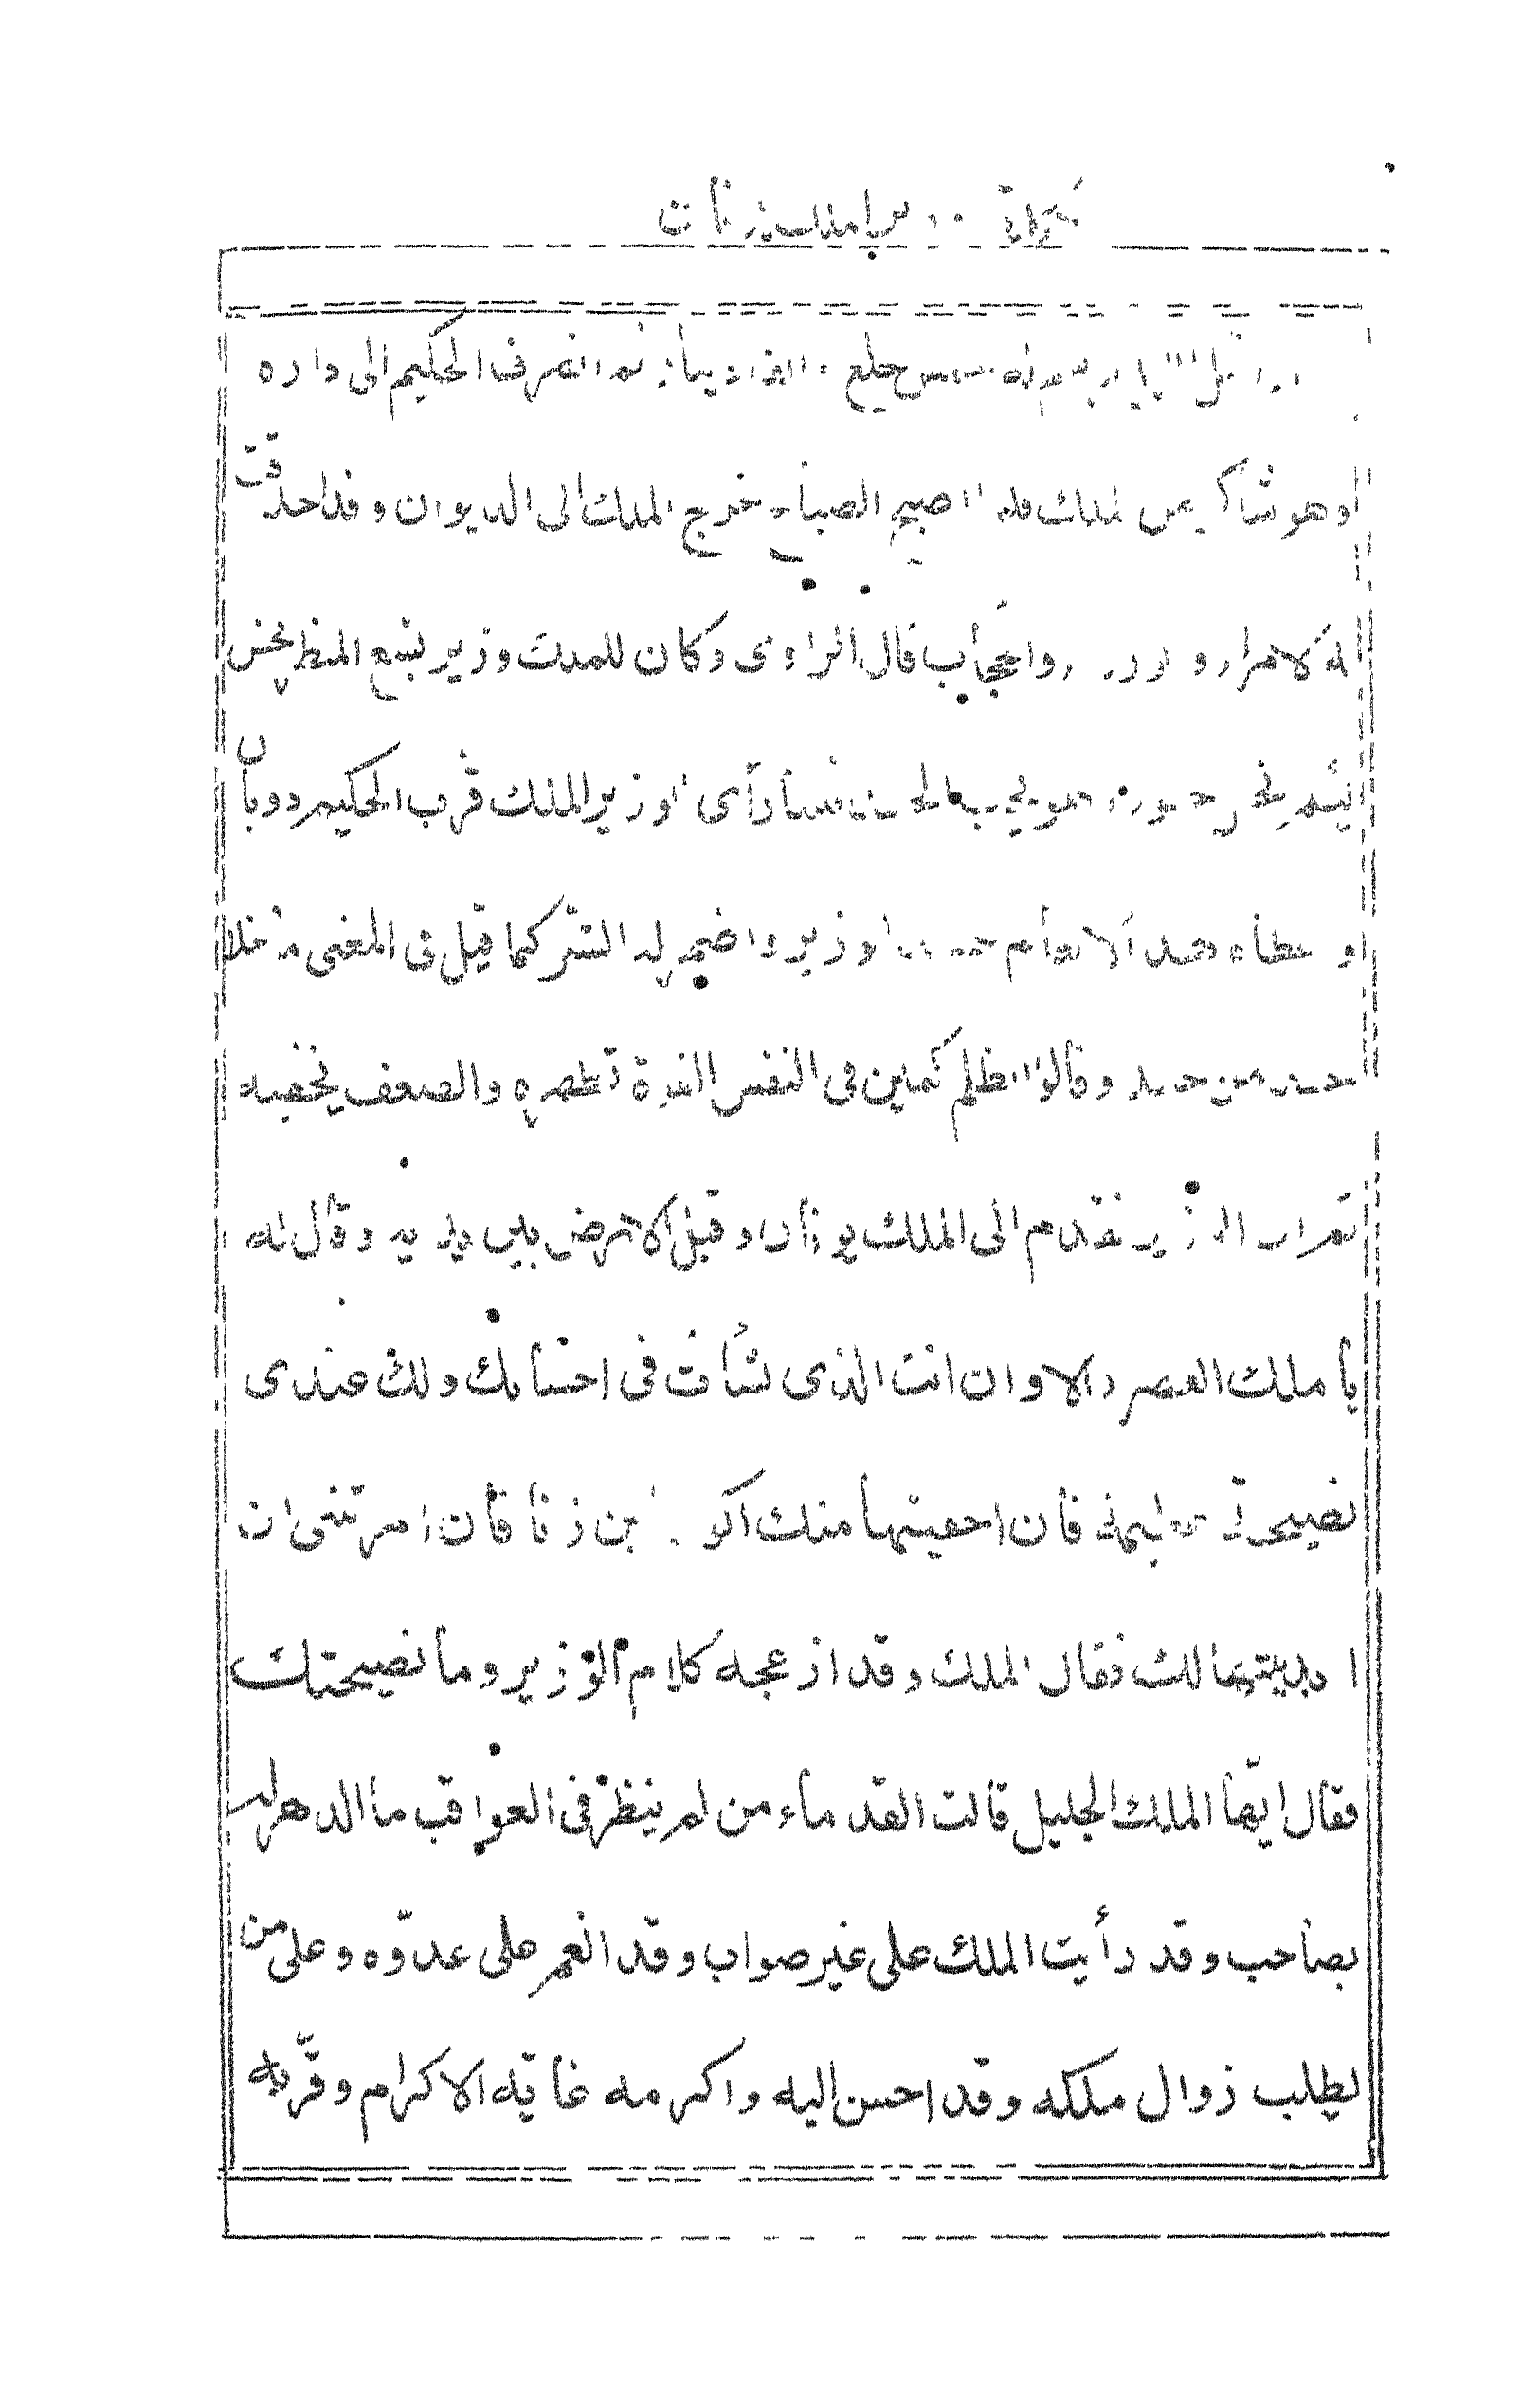 حكاية وزير الملك يونان
خلع ثم انصرف الحكيم الى داره
وهو شاكر من الملك فلما اصبح الصباح خرج الملك الى الديوان وقد احدقت
له الامراء والوزراء والحجاب قال الراوى وكان للملك وزير بشع المنظر نحس
فلما رأى الوزير الملك قرب الحكيم دوبان
واعطاه هذا الانعام حسده الوزير واضمر له الشر كما قيل فى المعنى ما خلا
جسد من حسد وقالوا الظلم كمين فى النفس القوة تظهره والضعف يخفيه
ثم ان الوزير تقدم الى الملك يونان وقبل الارض بين يديه وقال له
يا ملك العصر والاوان انت الذى نشأت فى احسانك ولك عندى
نصيحة عظيمة فان اخفيتها عنك اكون ابن زنا فان امرتنى ان
ابديتها لك فقال الملك وقد ازعجه كلام الوزير وما نصيحتك
فقال ايّها الملك الجليل قالت القدماء من لم ينظر فى العواقب ما الدهر له
بصاحب وقد رأيت الملك على غير صواب وقد انعم على عدوّه وعلى من
يطلب زوال ملكه وقد احسن اليه واكرمه غاية الاكرام وقرّبه